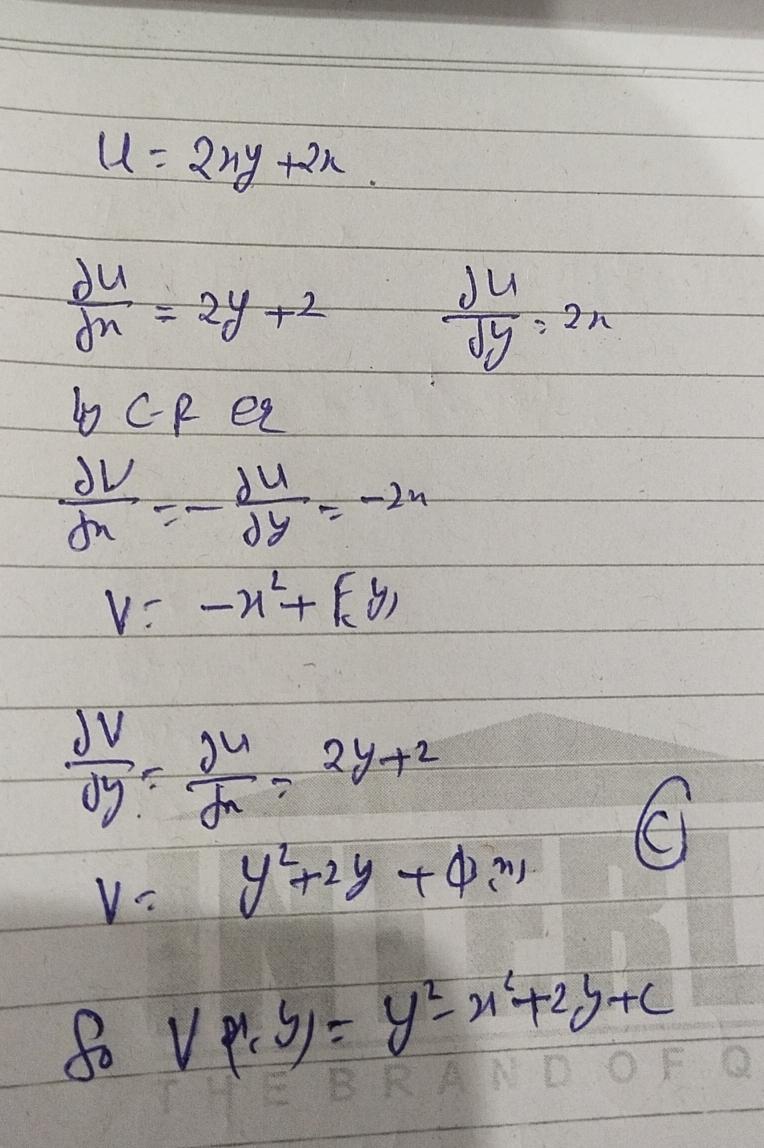 U = 2xy + 2x .
∂U/∂x = 2y + 2    ∂U/∂y = 2x
by C-R eq
∂V/∂x = - ∂U/∂y = -2x
V = -x² + f(y)
∂V/∂y = ∂U/∂x = 2y+2
V = y² + 2y + Φ(x)
(C)
So V(x, y) = y² - x² + 2y + C
THE BRAND OF Q